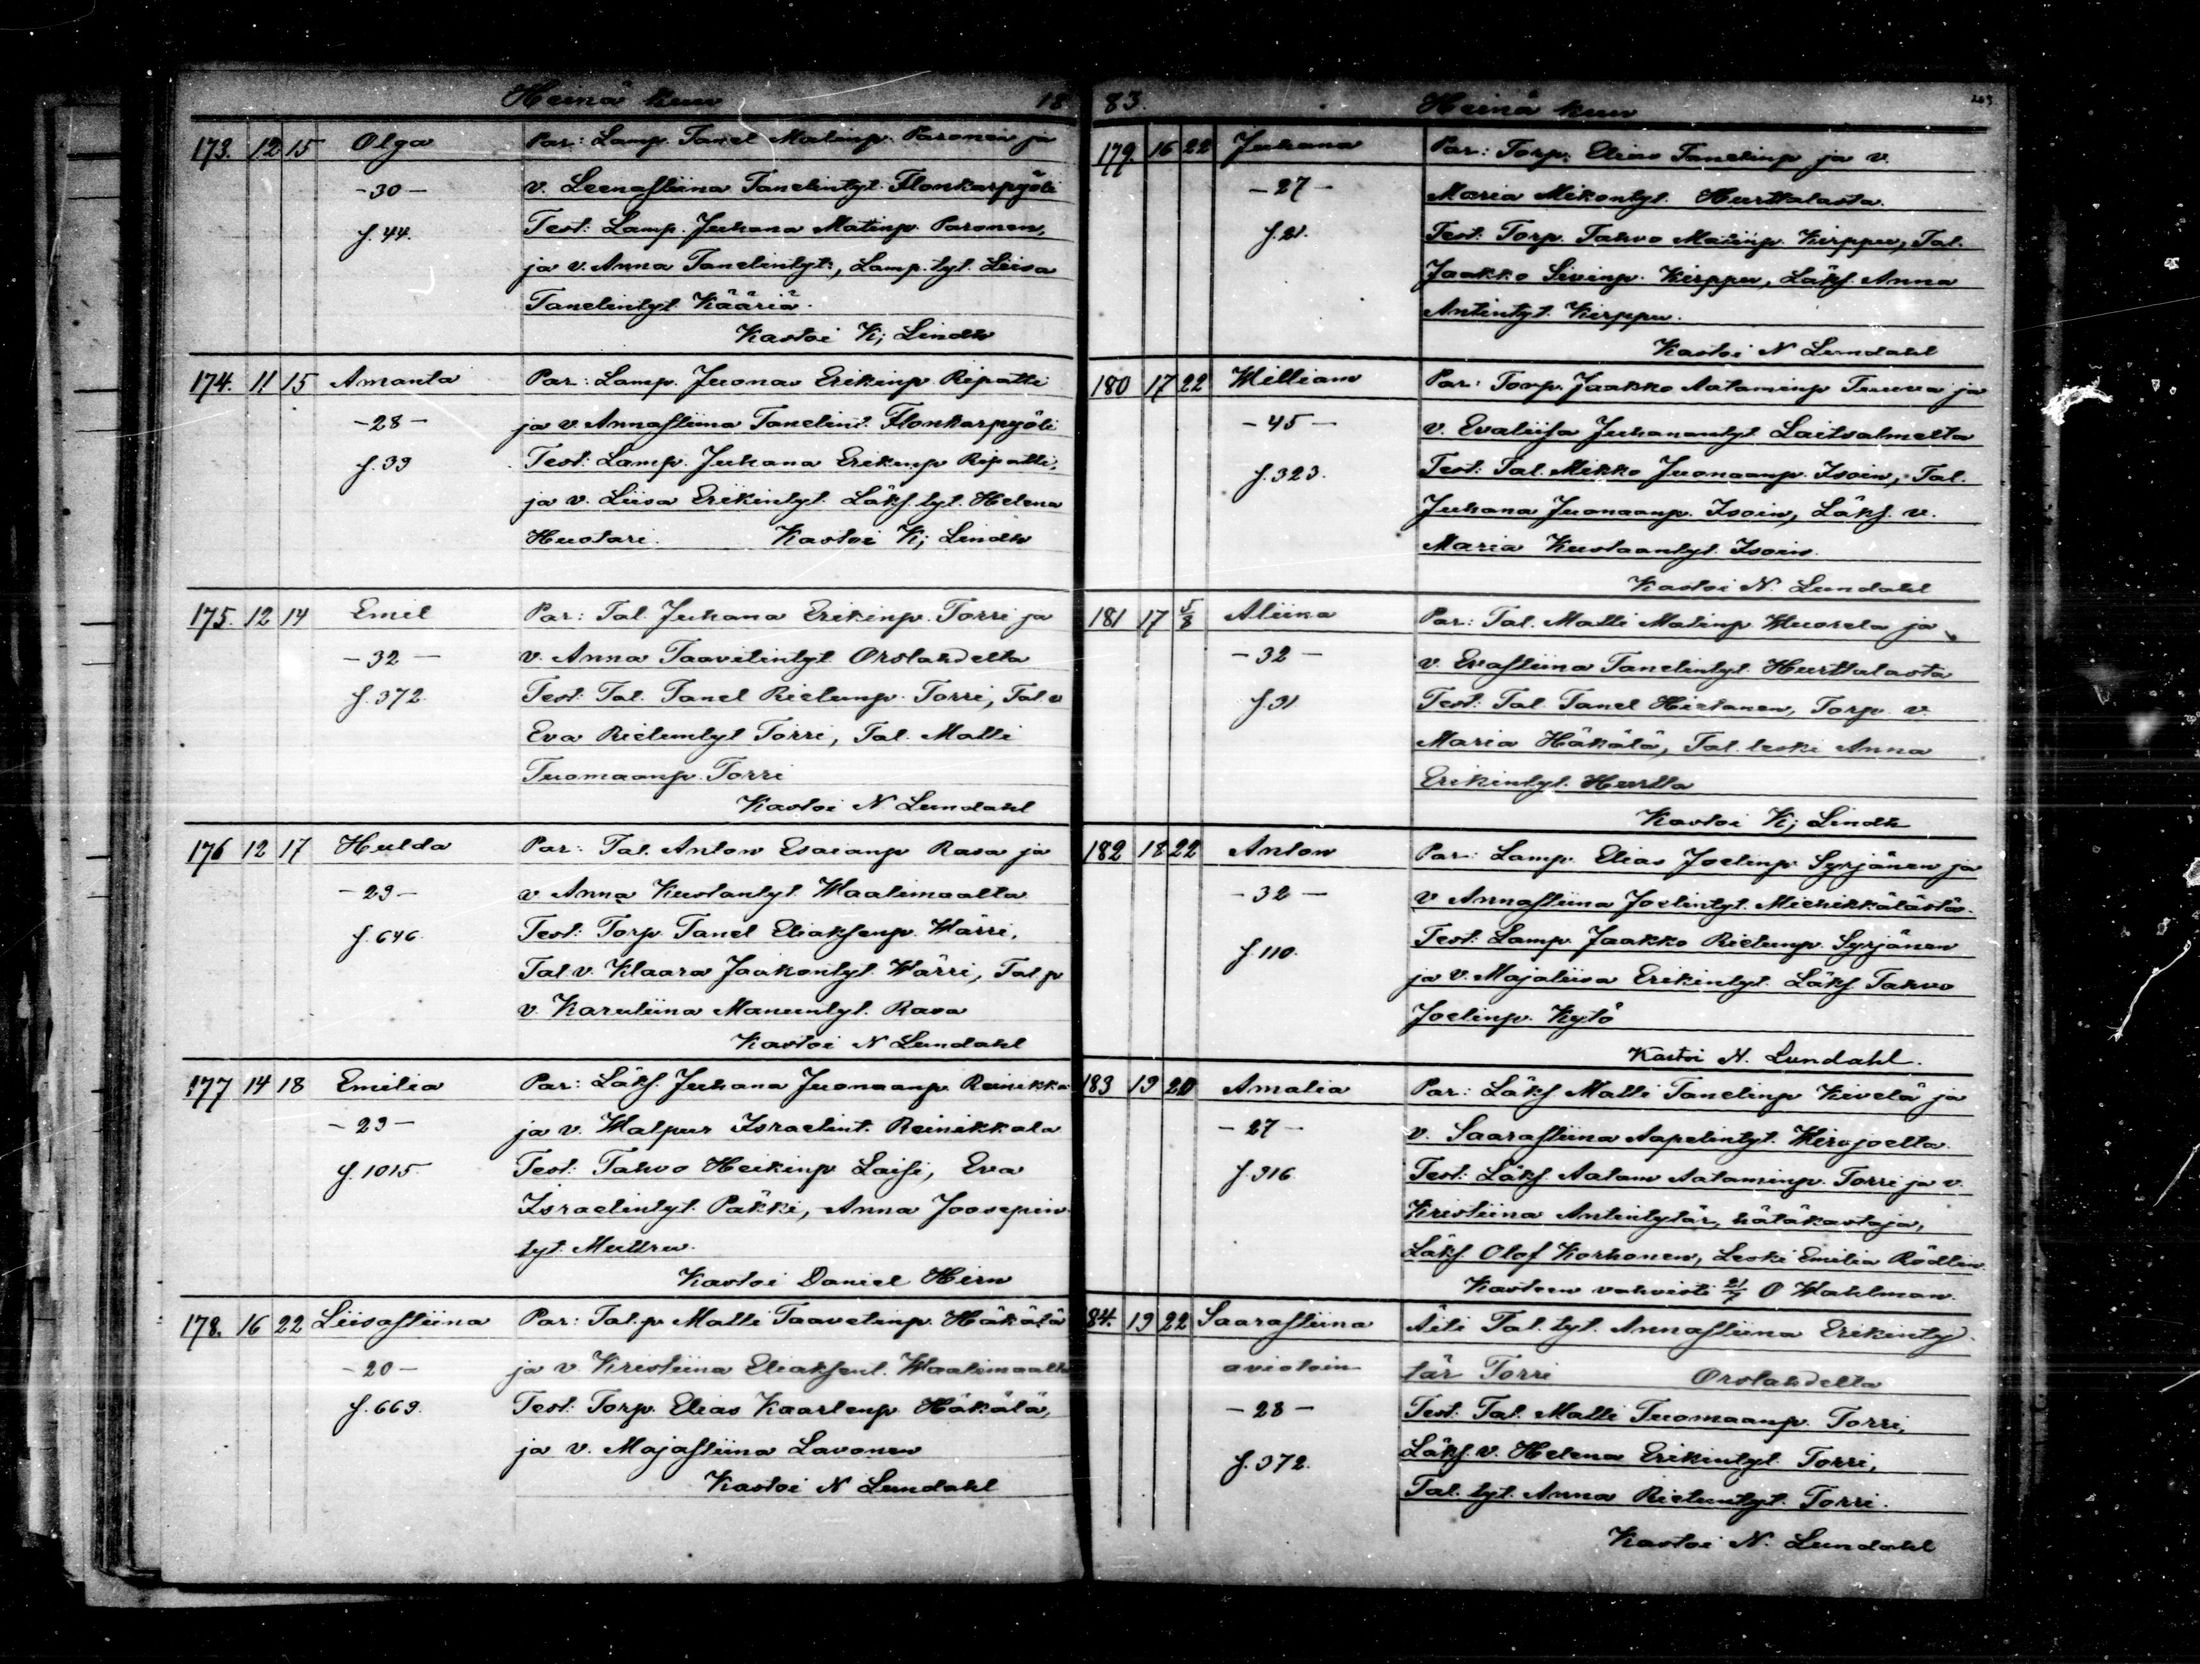 Heinä kuu 18
173. 12 15 Olga Par: Lamp. Tanel Matinp. Paronen ja
-30- v. Leenastiina Tanelintyt. Flonkarpyöli
f. 44. Test: Lamp. Juhana Matinp. Paronen,
ja v. Anna Tanelintyt., Lamp. tyt. Liisa
Tanelintyt Kääriä.
Kastoi K; Lindh
174. 11 15 Amanta Par: Lamp. Juonas Erikinp. Ripatti
-28- ja v. Annastiina Tanelint. Flonkarpyöli
f. 39 Test: Lamp. Juhana Erikinp Ripatti,
ja v. Liisa Erikintyt. Läks. tyt. Helena
Huotari. Kastoi K; Lindh
175. 12 14 Emil Par: Tal. Juhana Erikinp. Torri ja
-32- v. Anna Taavitintyt Orslahdelta
f. 372. Test: Tal. Tanel Rietunp. Torri, Tal. v
Eva Rietuntyt Torri, Tal. Matti
Tuomaanp. Torri
Kastoi N. Lundahl
176 12 17 Hulda Par: Tal. Anton Esaianp Rasa ja
-29- v Anna Kustantyt. Waalimaalta
f. 646. Test: Torp. Tanel Eliaksenp. Wärri,
Tal. v. Klaara Jaakontyt. Wärri, Tal. p
v. Karuliina Manuntyt. Rasa
Kastoi N Lundahl
177 14 18 Emilia Par: Läks. Juhana Juonaanp. Reinikka
-29- ja v. Walpur Israelint. Reinikkala
f. 1015. Test: Tahvo Heikinp Laisi, Eva
Israelintyt. Päkki, Anna Joosepin
tyt. Muttru.
Kastoi Daniel Hirn
178. 16 22 Liisastiina Par: Tal. p. Matti Taavetinp. Häkälä
-20- ja v. Kristiina Eliaksent. Waalimaalta
f. 669. Test: Torp. Elias Kaarlenp Häkälä,
ja v. Majastiina Lavonen
Kastoi N Lundahl
83. Heinä kuu
179. 16 22 Juhana Par: Torp. Elias Tanelinp ja v.
-27- Maria Mikontyt. Hurttalasta.
f. 21. Test: Torp. Tahvo Matinp. Kirppu, Tal.
Jaakko Sivinp. Kirppu, Läks. Anna
Antintyt. Kirppu.
Kastoi N Lundahl
180 17 22 William Par: Torp. Jaakko Aataminp Tuuva ja
-45- v. Evaliisa Juhanantyt Laitsalmelta
f. 323. Test: Tal. Mikko Juonaanp. Isoin, Tal.
Juhana Juonaanp. Isoin, Läks. v.
Maria Kustaantyt. Isoin.
Kastoi N. Lundahl
181 17 5/8 Aliina Par: Tal. Matti Matinp Wuorela ja
-32- v. Evastiina Tanelintyt. Hurttalasta
f. 31 Test: Tal. Tanel Hietanen, Torp. v.
Maria Häkälä, Tal. leski Anna
Erikintyt. Hurtta
Kastoi K; Lindh
182 18 22 Anton Par: Lamp. Elias Joelinp Syrjänen ja
-32- v Annastiina Joelintyt. Miehikkälästä.
f. 110. Test: Lamp. Jaakko Rietunp. Syrjänen
ja v. Majaliisa Erikintyt. Läks. Tahvo
Joelinp. Kytö
Kastoi N. Lundahl.
183 19 20 Amalia Par: Läks. Matti Tanelinp Kivelä ja
-27- v. Saarastiina Aapelintyt. Wirojoelta.
f. 316. Test: Läks. Aatam Aataminp. Torri ja v.
Kristiina Antintytär, hätäkastaja,
Läks. Olof Korhonen, Leski Emilia Rödlin.
Kasteen vahvisti 21/7 O Wahlman.
84. 19 22 Saarastiina Äiti Tal. tyt. Annastiina Erikinty
aviotoin tär Torri Orslahdelta
-28- Test. Tal. Matti Tuomaanp. Torri,
f. 372. Läks. v. Helena Erikintyt. Torri,
Tal. tyt. Anna Rietuntyt. Torri.
Kastoi N. Lundahl